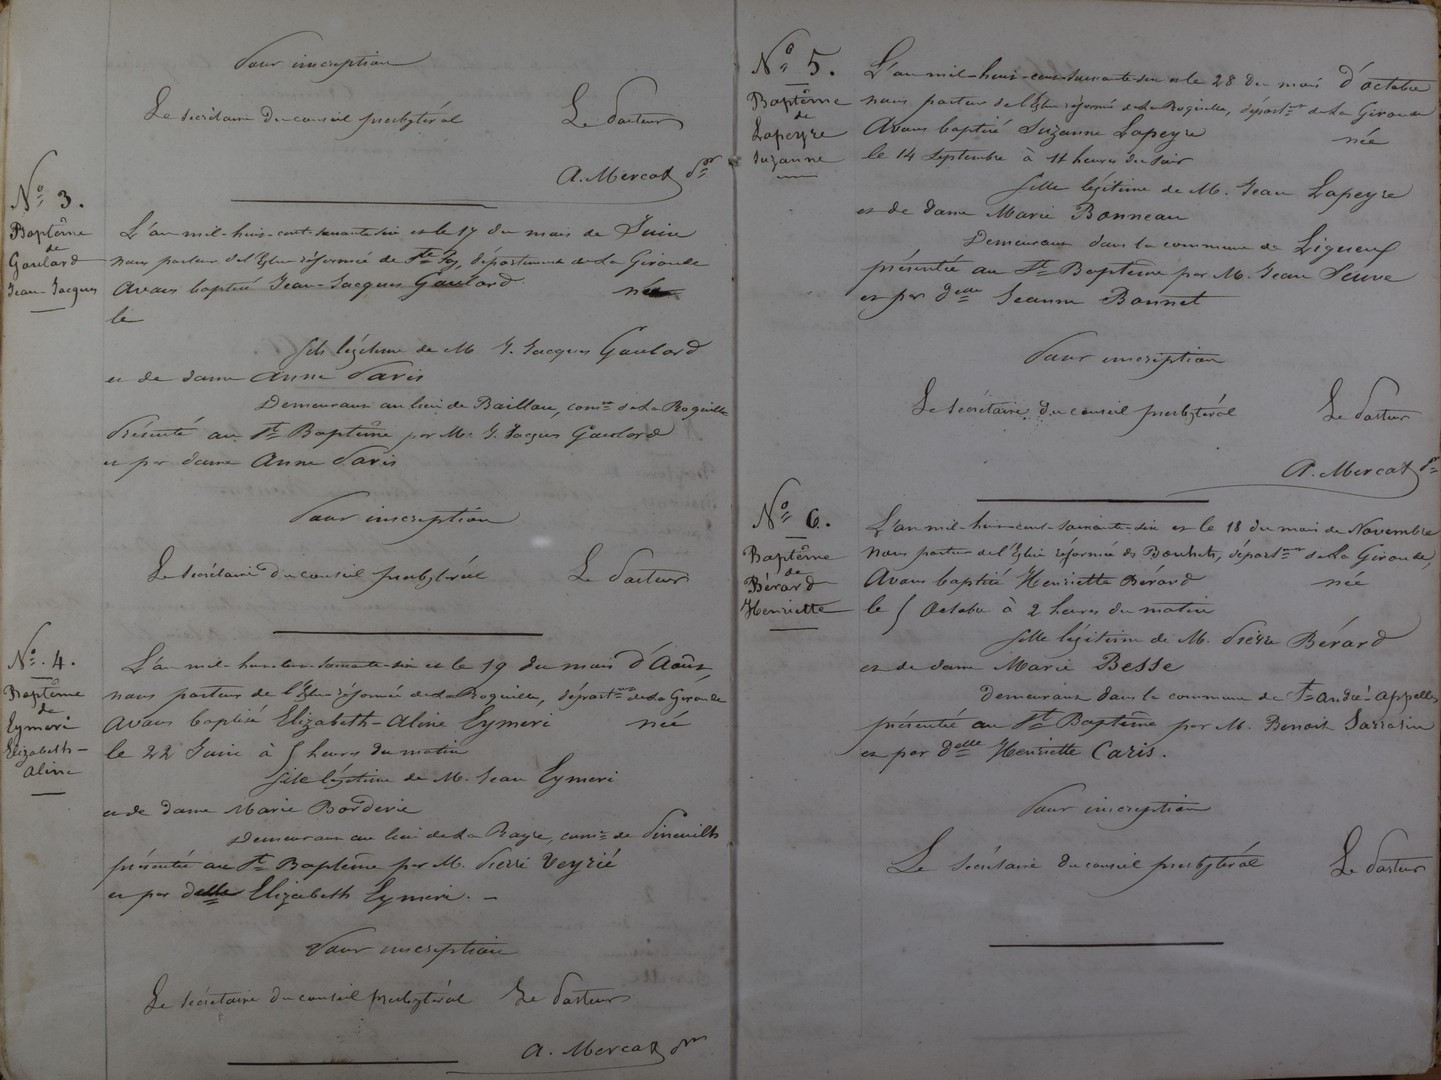 Pour inscription
Le secrétaire du conseil presbytéral Le Pasteur
A. Mercat pr
No 3.
Baptême
de
Gaulard
Jean-Jacques
L'an mil-huit-cent-soixante-six et le 17 du mois de Juin
nous pasteur de l'Eglise réformée de Ste Foy, département de la Gironde
Avons baptisé Jean-Jacques Gaulard né
le
fils légitime de M. J. Jacques Gaulard
et de dame Anne Paris
Demeurant au lieu de Baillou, comne de La Roquille
Présenté au St Baptême par M. J. Jacques Gaulard
et par dame Anne Paris
Pour inscription
Le secrétaire du conseil presbytéral Le Pasteur
No. 4.
Baptême
de
Eymeri
Elizabeth-
Aline
L'an mil-huit-cent-soixante-six et le 19 du mois d'Août,
nous pasteur de l'Eglise réformée de La Roquille, départnt de la Gironde
Avons baptisé Elizabeth-Aline Eymeri née
le 22 Juin à 5 heures du matin
fille légitime de M. Jean Eymeri
et de dame Marie Borderie
Demeurant au lieu de La Raye, comne de Pineuilh
présentée au St Baptême par M. Pierre Veyrié
et par delle Elizabeth Eymeri. -
Pour inscription
Le secrétaire du conseil presbytéral Le Pasteur
A. Mercat pr
No 5.
Baptême
de
Lapeyre
Suzanne
L'an mil-huit-cent-soixante-six et le 28 du mois d'octobre
nous pasteur de l'Eglise réformée de La Roquille, départnt de la Gironde
Avons baptisé Suzanne Lapeyre née
le 14 Septembre à 11 heures du soir
fille légitime de M. Jean Lapeyre
et de dame Marie Bonneau
Demeurant dans la commune de Ligueux
présentée au St Baptême par M. Jean Seuve
et par delle Jeanne Bonnet
Pour inscription
Le secrétaire du conseil presbytéral Le Pasteur
A. Mercat pr
No 6.
Baptême
de
Bérard
Henriette
L'an mil-huit-cent-soixante-six et le 18 du mois de Novembre
nous pasteur de l'Eglise réformée des Bouhets, départnt de la Gironde,
Avons baptisé Henriette Bérard née
le 5 Octobre à 2 heures du matin
fille légitime de M. Pierre Bérard
et de dame Marie Besse
demeurant dans la commune de St André-Appelles
présentée au St Baptême par M. Benoit Sarrazin
et par delle Henriette Caris.
Pour inscription
Le Secrétaire du conseil presbytéral Le Pasteur